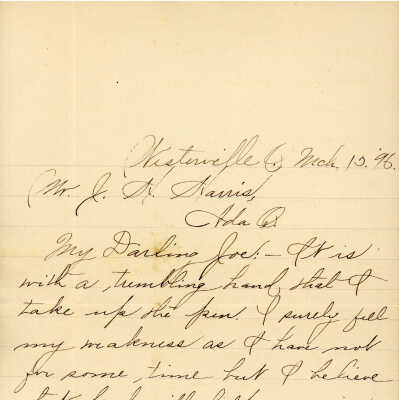 Westerville O, Mch. 15. '96.
Mr. J. H. Harris,
Ada O.
My Darling Joe:- It is
with a trembling hand that I
take up the pen. I surely feel
my weakness as I have not
for some time but I believe